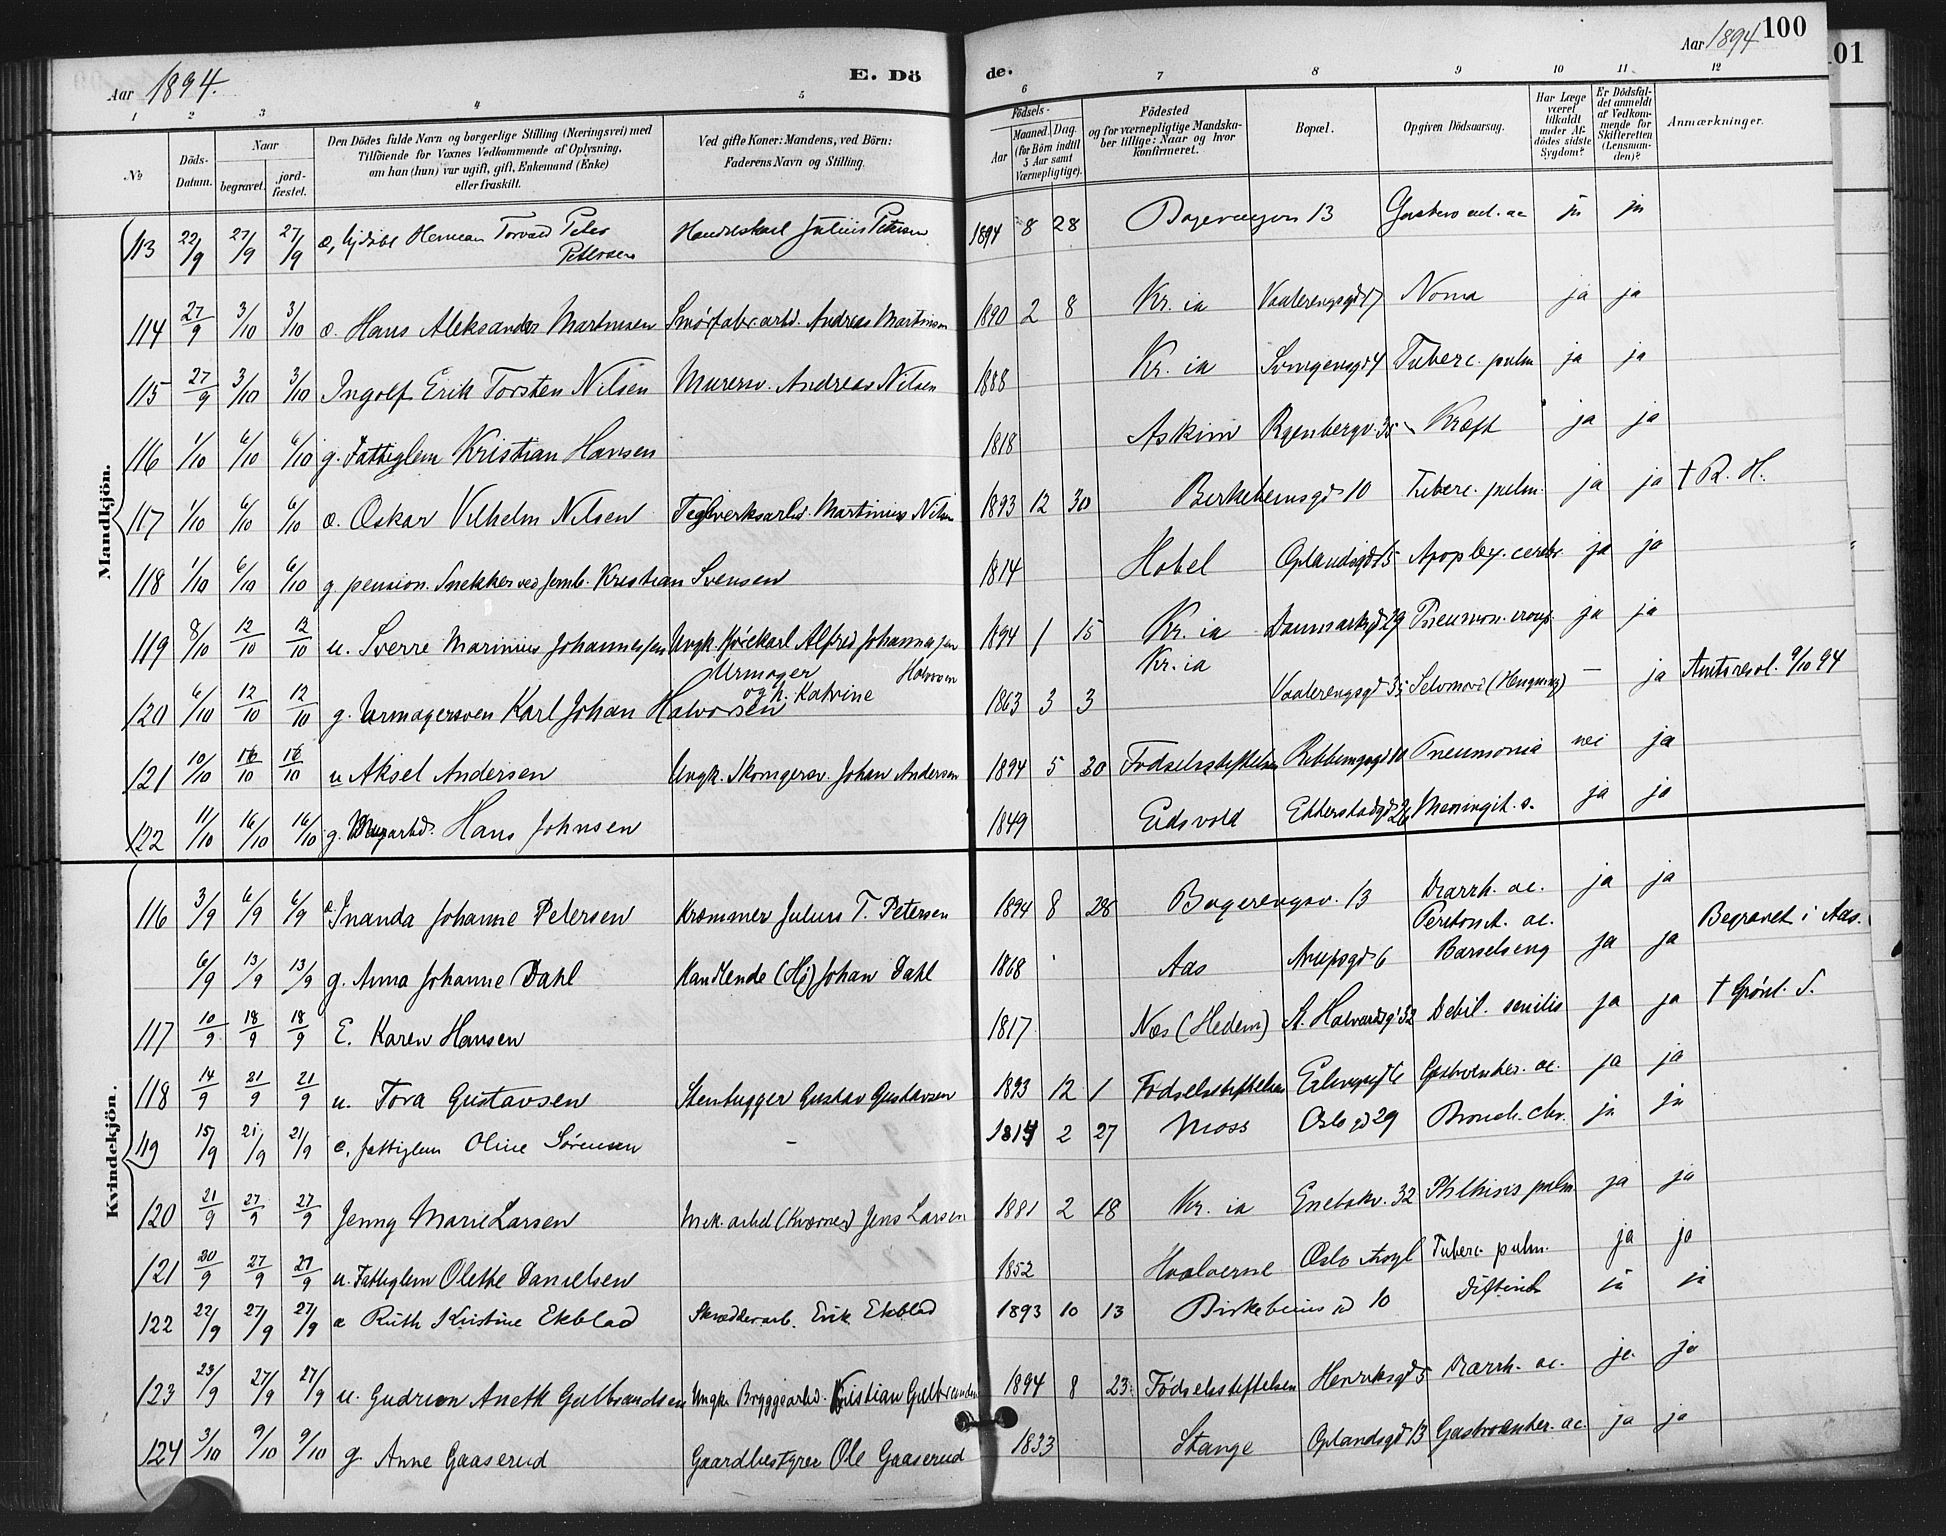 Aar 1894.
E. Dö
de.
Aar 1894
100
01
1 2 3 4 5 6 7 8 9 10 11 12
No
Döds-Datum.
Naar
begravet.
jord-fæstet.
Den Dödes fulde Navn og borgerlige Stilling (Næringsvei) med
Tilföiende for Voxnes Vedkommende af Oplysning,
om han (hun) var ugift, gift, Enkemand (Enke)
eller fraskilt.
Ved gifte Koner: Mandens, ved Börn:
Faderens Navn og Stilling.
Födsels-
Aar
Maaned. Dag.
(for Börn indtil
5 Aar samt
Værnepligtige).
Födested
og for værnepligtige Mandska-
ber tillige: Naar og hvor
konfirmeret.
Bopæl.
Opgiven Dödsaarsag.
Har Læge
været
tilkaldt
under Af-
dödes sidste
Sygdom?
Er Dödsfal-
det anmeldt
af Vedkom-
mende for
Skifteretten
(Lensman-
den)?
Anmærkninger.
Mandkjön.
113 22/9 27/9 27/9 Herman Torvald Peter Petersen Handelskarl Julius Petersen 1894 8 28 13 ja ja
114 27/9 3/10 3/10 æ. Hans Aleksander Martinsen Smörfabr. arbd. Andreas Martinsen 1890 2 8 Kr. ia Vaalerengsgd 17 Noma ja ja
115 27/9 3/10 3/10 Ingolf Erik Torsten Nilsen Murersv. Andreas Nilsen 1888 Kr. ia Tuberc. pulm ja ja
116 1/10 6/10 6/10 g. Fattiglem Kristian Hansen 1818 Askim Ryenbergv. 35 Kræft ja ja
117 1/10 6/10 6/10 æ. Oskar Vilhelm Nilsen Teglverksarbd. Martinius Nilsen 1893 12 30 Birkebeinsgd 10 Tuberc. pulm. ja ja † R. H.
118 1/10 6/10 6/10 g pension. Snekker ved Jernb. Kristian Svensen 1814 Hobel Oplandsgd 15 Apoplex. cerebr ja ja
119 8/10 12/10 12/10 u. Sverre Marinius Johannessen Ungk. Kjörekarl Alfred Johannessen 1894 1 15 Kr. ia Danmarksgd 29 Pneumon. croup. ja ja
120 6/10 12/10 12/10 g. Urmagersven Karl Johan Halvorsen Urmager Halvorsen og h. Katrine 1863 3 3 Kr. ia Vaalerengsgd 35 Selvmord (Hengning) — ja Amtsresol. 9/10 94
121 10/10 16/10 16/10 u Aksel Andersen Ungk. Skomagersv. Johan Andersen 1894 5 30 Födselsstiftelsen Pneumonia nei ja
122 11/10 16/10 16/10 g. Hans Johnsen 1849 Eidsvold Etterstadgd 26 Meningit. s. ja ja
Kvindekjön.
116 3/9 6/9 6/9 Inanda Johanne Petersen Kræmmer Julius T. Petersen 1894 8 28 Bogerengsv. 13 Diarrh. ac. ja ja
6/9 13/9 13/9 g. Anna Johanne Dahl Handlende (Hö) Johan Dahl 1868 Aas Arupsgd 6 Peritonit. ac. Barselseng ja ja Begravet i Aas.
117 10/9 18/9 18/9 E. Karen Hansen 1817 Næs (Hedem) St. Halvardsgd 32 Debil. senilis ja ja † Grönl. S.
118 14/9 21/9 21/9 u. Tora Gustavsen Stenhugger Gustav Gustavsen 1893 12 1 Födselsstiftelsen Gastroenter. ac. ja ja
119 15/9 21/9 21/9 e. fattiglem Oline Sörensen — 1814 2 27 Moss Oslo gd 29 Bronch. chr. ja ja
120 21/9 27/9 27/9 Jenny Marie Larsen Mek. arbd (Kværner) Jens Larsen 1881 2 18 Kr. ia Enebakv. 32 Phthisis pulm. ja ja
121 20/9 27/9 27/9 u. Fattiglem Olette Danielsen 1852 Hvalöerne Oslo Asyl Tuberc. pulm. ja ja
122 22/9 27/9 27/9 æ Ruth Kristine Ekblad Skrædderarb. Erik Ekblad 1893 10 13 Birkebeinsgd 10 Difterit ja ja
123 23/9 27/9 27/9 u. Gudrun Aneth Gulbrandsen Ungk. Bryggearbd. Kristian Gulbrandsen 1894 8 23 Födselsstiftelsen Henriksgd 5 Diarrh. ac. ja ja
124 3/10 9/10 9/10 g Anne Gaaserud Gaardbestyrer Ole Gaaserud 1833 Stange Oplandsgd 13 Gastroenter. ac. ja ja